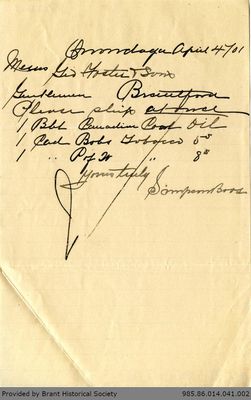 Onondaga April 4/01
Messrs Geo Foster & Sons
Gentlemen Brantford
Please ship at once
1 Bbl Canadian Coal Oil
1 Cad Bobs Tobacco 5s
1 " P of W " 8s
Yours truly
Simpson Bros
Provided by Brant Historical Society
985.86.014.041.002